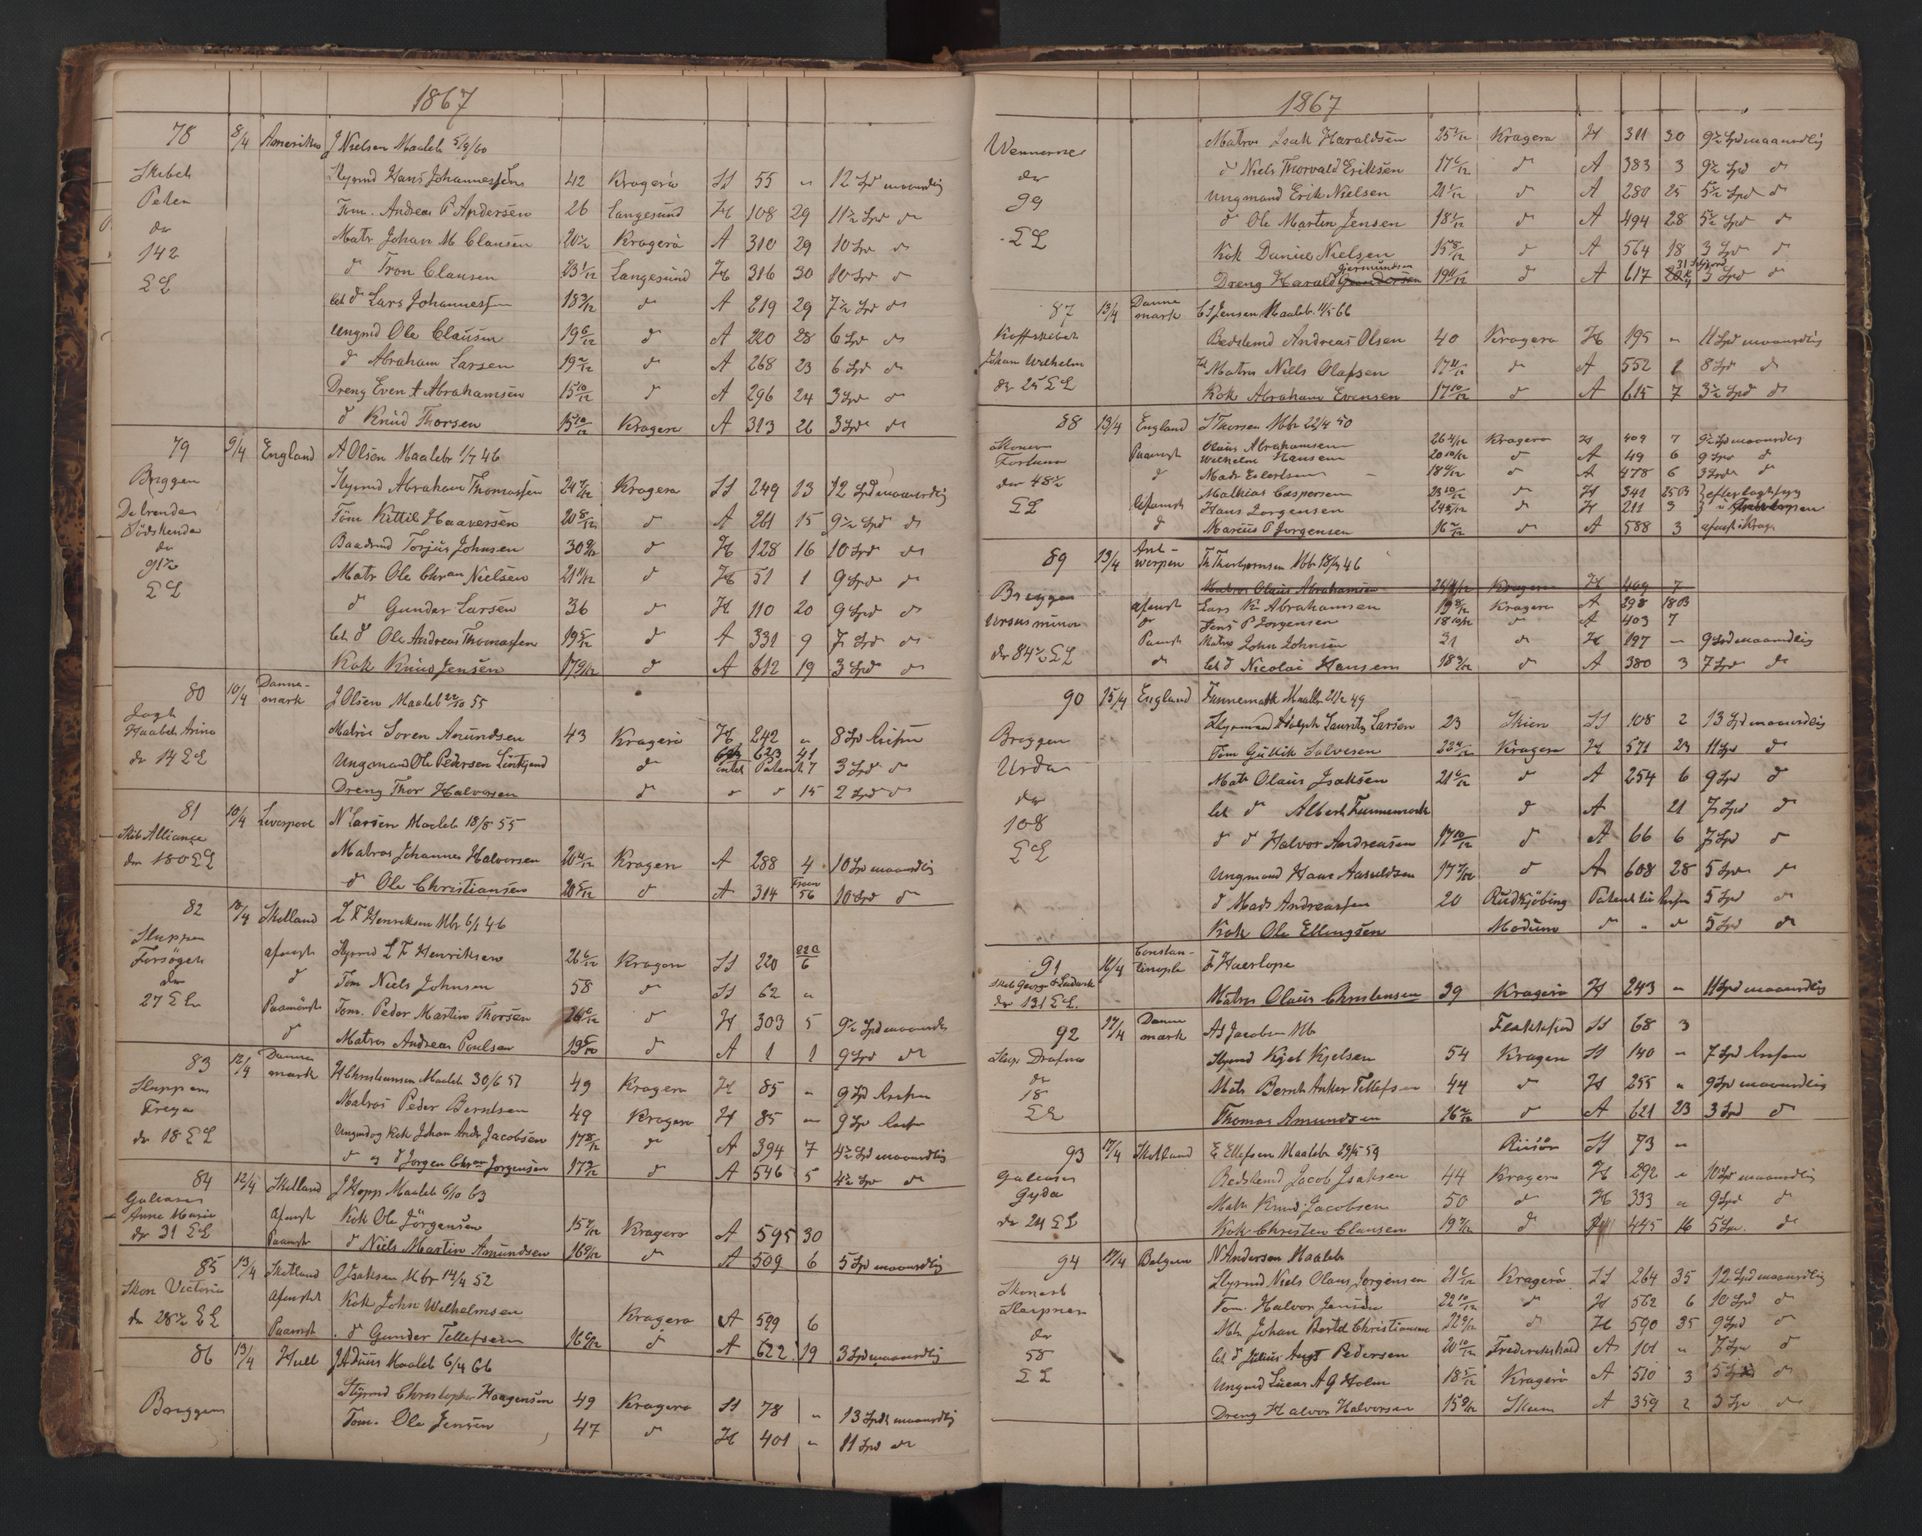 1867
78 8/4 Amerika J Nielsen Maaleb 5/9/60
Skibet Styrmd Hans Johannessen 42 Kragerö SS 55 " 12 Spd maanedlig
Peter Tom. Andreas P Andersen 26 Langesund H 108 29 11½ Spd d
dr Matr Johan M Clausen Kragerö A 310 29 10 Spd d
142 d Tron Clausen 23 1/12 Langesund H 316 30 10 Spd d
CL let d Lars Johannessen 18 d A 219 29 7½ Spd d
Ungmd Ole Clausen 19 6/12 d A 220 28 6 Spd d
d Abraham Larsen 19 d A 268 23 6 Spd d
Dreng Even A Abrahamsen 15 10/12 d A 296 24 3 Spd d
d Knud Thorsen 15 10/12 Kragerø A 313 26 3 Spd d
79 9/4 England A Olsen Maalebr 1/7 46
Briggen Styrmd Abraham Thomassen Kragerø SS 249 13 12 Spd maanedlig
De trende Tom Kittil Haaversen 20 8/12 d A 261 15 9½ Spd d
Sødskende Baadsmd Torjus Johnsen 30 d H 128 16 10 Spd d
dr Matr Ole Chran Nielsen 21 11/12 d H 51 1 9 Spd d
91½ CL d Gunder Larsen 36 d H 110 20 9 Spd d
let d Ole Andreas Thomassen 19 5/12 d A 331 9 7 Spd d
Kok Knud Jensen d A 612 19 3 Spd d
80 10/4 Danne-mark J Olsen Maaleb 55
Jagt Haabet Anna Matros Soren Amundsen 43 Kragerö H 242 " 8 Spd Reisen
dr 14 CL Ungmand Ole Pedersen d 623 41 3 Spd d
Dreng Thor Halvorsen d d d 15 2 Spd d
81 10/4 Leverpool N Larsen Maaleb 18/8 55
Skib Alliance Matros Johannes Halvorsen Kragerø A 288 4 10 Spd maanedlig
dr 180 CL d Ole Christiansen 20 5/12 d A 314 56 10 Spd d
82 /4 Skotland L F Henriksen Mbr 6/1 46
Sluppen afmynst Styrmd L F Henriksen 26 6/12 Kragerø SS 220 6
Forsøget d Tom Niels Johnsen 58 d SS 62 "
dr 27 CL Paamönst Tom. Peder Martin Thorsen d H 303 5 9½ Spd maanedlig
d Matros Andreas Poulsen d A 1 1 9 Spd d
83 12/4 Danne mark H Christiansen Maaleb 30/6 57 49 Kragerø H 85 " 9 Spd Reisen
Sluppen Matros Peder Berntsen 49 Kragerø H 85 " 9 Spd
Freya Ungmd og Kok Johan Andr Jacobsen 17 8/12 d A 394 7 4½ Spd maanedlig
dr 18 CL d og d Jorgen Chr Jorgensen d A 546 5 4½ Spd d
84 12/4 Skotland J Hopp Maaleb 6/10 63
Galeasen Anne Marie afmynst Kok Ole Jörgensen Kragerø A 595 30
dr 31 CL Paamst d Niels Martin Amundsen d A 509 6 5 Spd maanedlig
85 13/4 Skotland O Isaksen Mbr 14/4 52
Skon Victoria afmynstet Kok John Wilhelmsen Kragerø A 599 6
dr 28½ CL Paamst d Gunder Tellefsen d A 622 19 3 Spd maanedlig
86 13/4 Hull Maaleb 6/4 66
Briggen Styrmd Christopher Haagensen 49 Kragerø SS 78 " 13 Spd maanedlig
Tom. Ole Jensen 47 d H 401 " 11 Spd d
1867
Wennerne Matros Isak Haraldsen Kragerø H 311 30 9½ Spd maanedlig
dr d Niels Thorvald Eriksen 17 6/12 d A 383 3 9½ Spd d
99 Ungmand Erik Nielsen d A 280 25 5½ Spd d
CL d Ole Martin Jensen d A 494 28 5½ Spd d
Kok Daniel Nielsen d A 564 18 3 Spd d
Dreng Harald Gjermundsen 19 11/12 d A 617 3 Spd d
87 13/4 Danne mark C S Jensen Maaleb 66
Koffskibet Bedstemd Andreas Olsen 40 Kragerø H 195 " 11 Spd maanedlig
Johan Wilhelm Matros Niels Olafsen 17 11/12 d A 552 1 8 Spd d
dr 25 CL Kok Abraham Evensen 17 10/12 d A 615 7 3½ Spd d
88 13/4 England S Thorsen Mbr 22/4 50
Skoner Fortuna Paamst Olaus Abrahamsen Kragerø H 409 7 9½ Spd maanedlig
Wilhelm Hansen 20 10/12 d A 49 6 9 Spd d
dr 48½ d Mads Eilertsen d A 478 6 3 Spd d
CL Afmønst Mathias Caspersen 23 10/12 d H 341 25
Hans Jorgensen d H 211 3
d Marius P Jorgensen d A 588 3
89 13/4 Ant-werpen Th Thorbjørnsen Mbr 18/4 46
Briggen Matros Olaus Abrahamsen Kragerø H 409 7
afmst Lars K Abrahamsen 19 8/12 Kragerø A 298 18
Ursus minor Jens P Jorgensen 18 10/12 d A 403 7
Paamst Matros John Johnsen 31 d H 197 " 9 Spd maanedlig
dr 84½ CL d let d Nicolai Hansen d A 380 3 7 Spd d
90 15/4 England Funnemark Maalb 21/2 49
Briggen Styrmd Adolph Lauritz Larsen 23 Skien SS 108 2 13 Spd maanedlig
Urda Tom Gullik Salvesen Kragerø H 571 23 11 Spd d
dr Matr Olaus Isaksen 21 6/12 d A 254 6 9 Spd d
108 let d Albert Funnemark d A 21 7 Spd d
CL d d Halvor Andreasen 17 10/12 d A 66 6 7 Spd d
Ungmand Hans Aanuldsen d A 608 28 5 Spd d
d Mads Andreassen 20 Rudkjöbing Patent 5 Spd d
Kok Ole Ellingsen Modum d " d 5 Spd d
91 16/4 Constan-tinople F Haerlope
Skib George Ludvik
dr 131 CL Matros Olaus Christensen 39 Kragerö H 243 " 11 Spd maanedlig
92 17/4 Danne mark Jacobsen Mb SS 68 3
Slup Drafna Styrmd Kjel Kjelsen 54 Kragerø SS 140 " 7 Spd Reisen
dr 18 CL Matr Bernt Anker Tellefsen 44 d H 255 " 9 Spd maanedlig
Thomas Amundsen d A 621 23 3 Spd d
93 17/4 Skotland E Ellefsen Maaleb 59 Risör SS 73 "
Galeasen Bedstemd Jacob Isaksen 44 Kragerø H 292 " 10 Spd maanedlig
Gyda Matr Knud Jacobsen 50 d H 333 " 9 Spd d
dr 24 CL Kok Christen Clausen d A 445 16 5 Spd d
94 17/4 Belgien N Andersen Maaleb
Skonert Styrmd Niels Olaus Jorgensen 21 6/12 Kragerö SS 264 35 12 Spd maanedlig
Sleipner Tom. Halvor Jensen 22 10/12 d H 562 6 10 Spd d
dr Mtr Johan Bertel Christiansen d H 590 35 9 Spd d
58 let d Julius Augt Pedersen 20 10/12 Frederikshald A 101 " 7 Spd d
CL Ungmd Lucas A G Holm 18 5/12 Kragerö A 510 3 5 Spd d
Dreng Halvor Halvorsen 15 9/12 A 359 2 3 Spd d